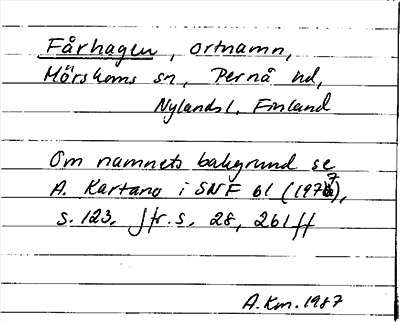 Fårhagen, ortnamn,
Mörskoms sn, Pernå hd,
Nylands l, Finland
Om namnets bakgrund se
A. Kartano i SNF 61 (1977),
s. 123. Jfr. s. 28, 261 ff
A.Km. 1987